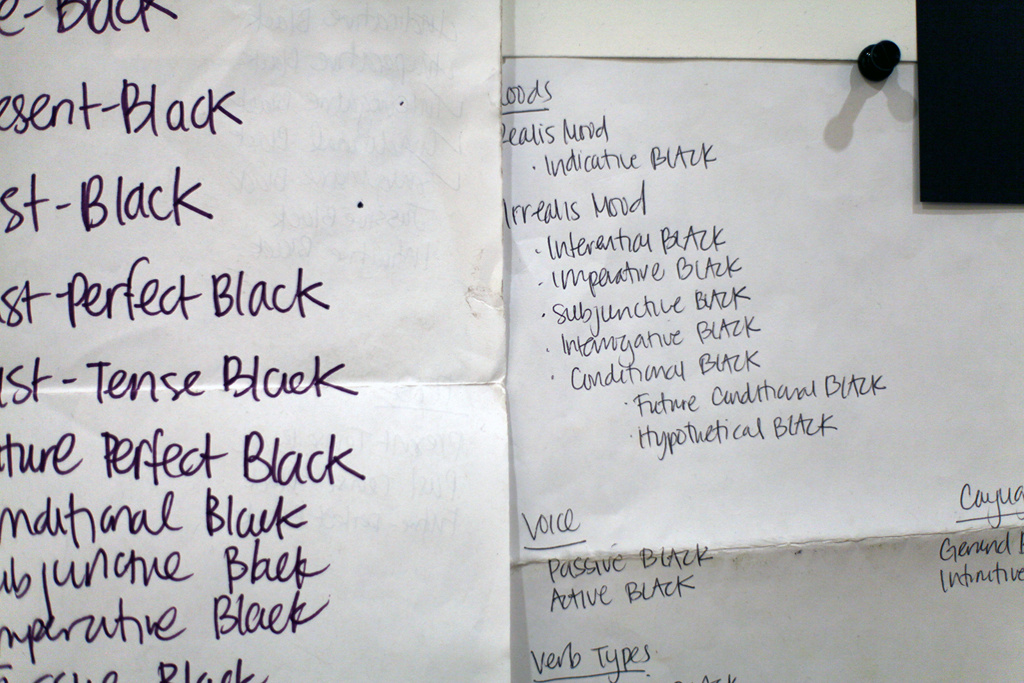 e-Black
esent-Black
st-Black
st-perfect Black
ast-Tense Black
ture Perfect Black
nditional Black
ubjunctive Black
mperative Black
Jussive Black
oods
Realis Mood
· Indicative BLACK
Irrealis Mood
· Intentional BLACK
· Imperative BLACK
· Subjunctive BLACK
· Interrogative BLACK
· Conditional BLACK
· Future Conditional BLACK
· Hypothetical BLACK
Voice
Passive BLACK
Active BLACK
Verb Types
BLACK
Gerund B
Infinitive